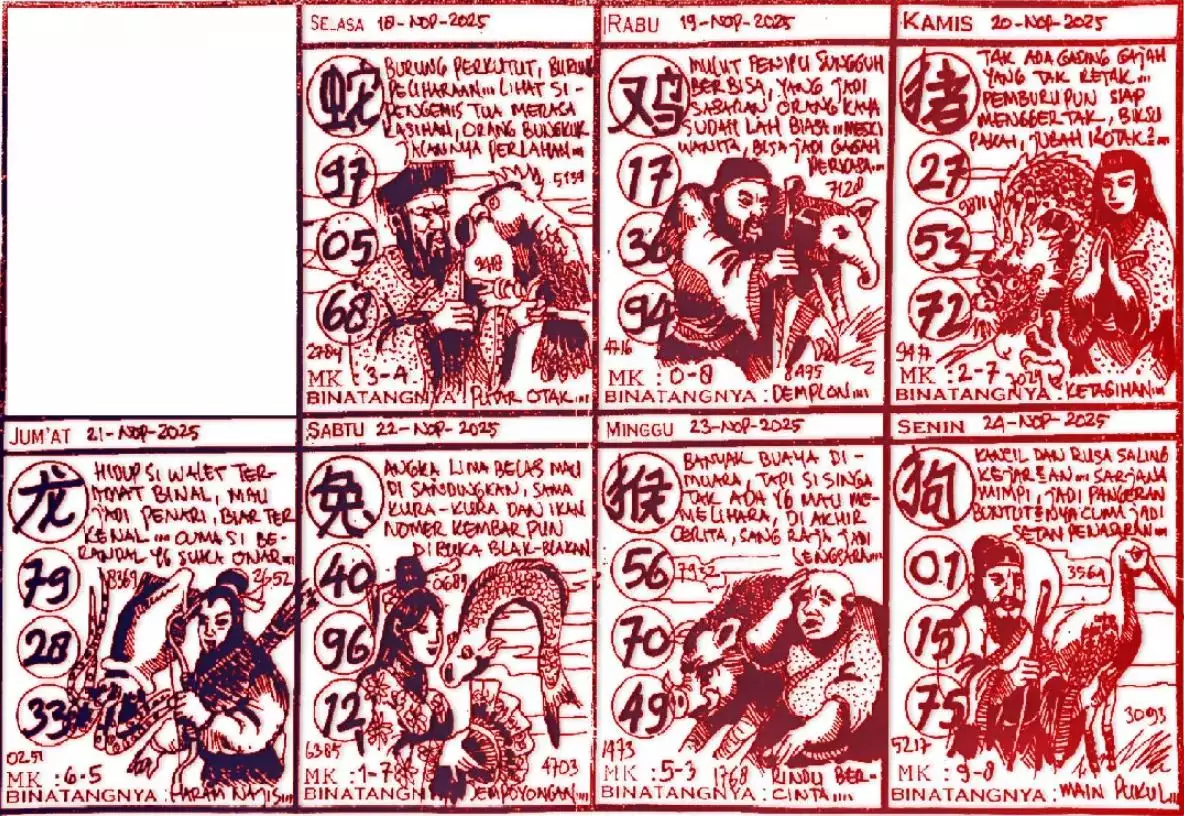 SELASA 18-NOP-2025
蛇
BURUNG PERKUTUT, BURUNG
PELIHARAAN... LIHAT SI-
PENGEMIS TUA MERASA
KASIHAN, ORANG BUNGKUK
JALANNYA PERLAHAN...
97
05
68
5139
2784
MK : 3-4
BINATANGNYA : PUTAR OTAK....
RABU 19-NOP-2025
鸡
MULUT PENIPU SUNGGUH
BERBISA, YANG JADI
SASARAN ORANG KAYA
SUDAH LAH BIASA... MESKI
WANITA, BISA JADI GAGAH
PERKASA...
17
36
94
7128
4716
8495
MK : 0-8
BINATANGNYA : DEMPLON....
KAMIS 20-NOP-2025
猪
TAK ADA GADING GAJAH
YANG TAK RETAK...
PEMBURU PUN SIAP
MENGGERTAK, BIKSU
PAKAI, JUBAH KOTAK2...
27
53
72
MK : 2-7
BINATANGNYA : KETAGIHAN...
JUM'AT 21-NOP-2025
龙
HIDUP SI WALET TER-
AMAT BINAL, MAU
JADI PENARI, BIAR TER
KENAL... CUMA SI BE-
RANDAL YG SUKA ONAR...
79
28
33
8369
2652
0251
MK : 6-5
BINATANGNYA :
SABTU 22-NOP-2025
兔
ANGKA LIMA BELAS MAU
DI SANDINGKAN, SAMA
KURA-KURA DAN IKAN
NOMER KEMBAR PUN
DIBUKA BLAK-BLAKAN
40
96
12
0689
6385
4703
MK : 1-7
BINATANGNYA : SEMPOYONGAN...
MINGGU 23-NOP-2025
猴
BANYAK BUAYA DI-
MUARA, TAPI SI SINGA
TAK ADA YG MAU ME-
MELIHARA, DI AKHIR
CERITA, SANG RAJA JADI
SENGSARA...
56
70
49
7932
1473
1768
MK : 5-3
BINATANGNYA : RINDU BER-
CINTA....
SENIN 24-NOP-2025
狗
KANCIL DAN RUSA SALING
KEJAR2AN... SARJANA
MIMPI, JADI PANGERAN
BUNTUT2NYA CUMA JADI
SETAN PENASARAN...
01
15
75
3564
3093
5217
MK : 9-8
BINATANGNYA : MAIN PUKUL...